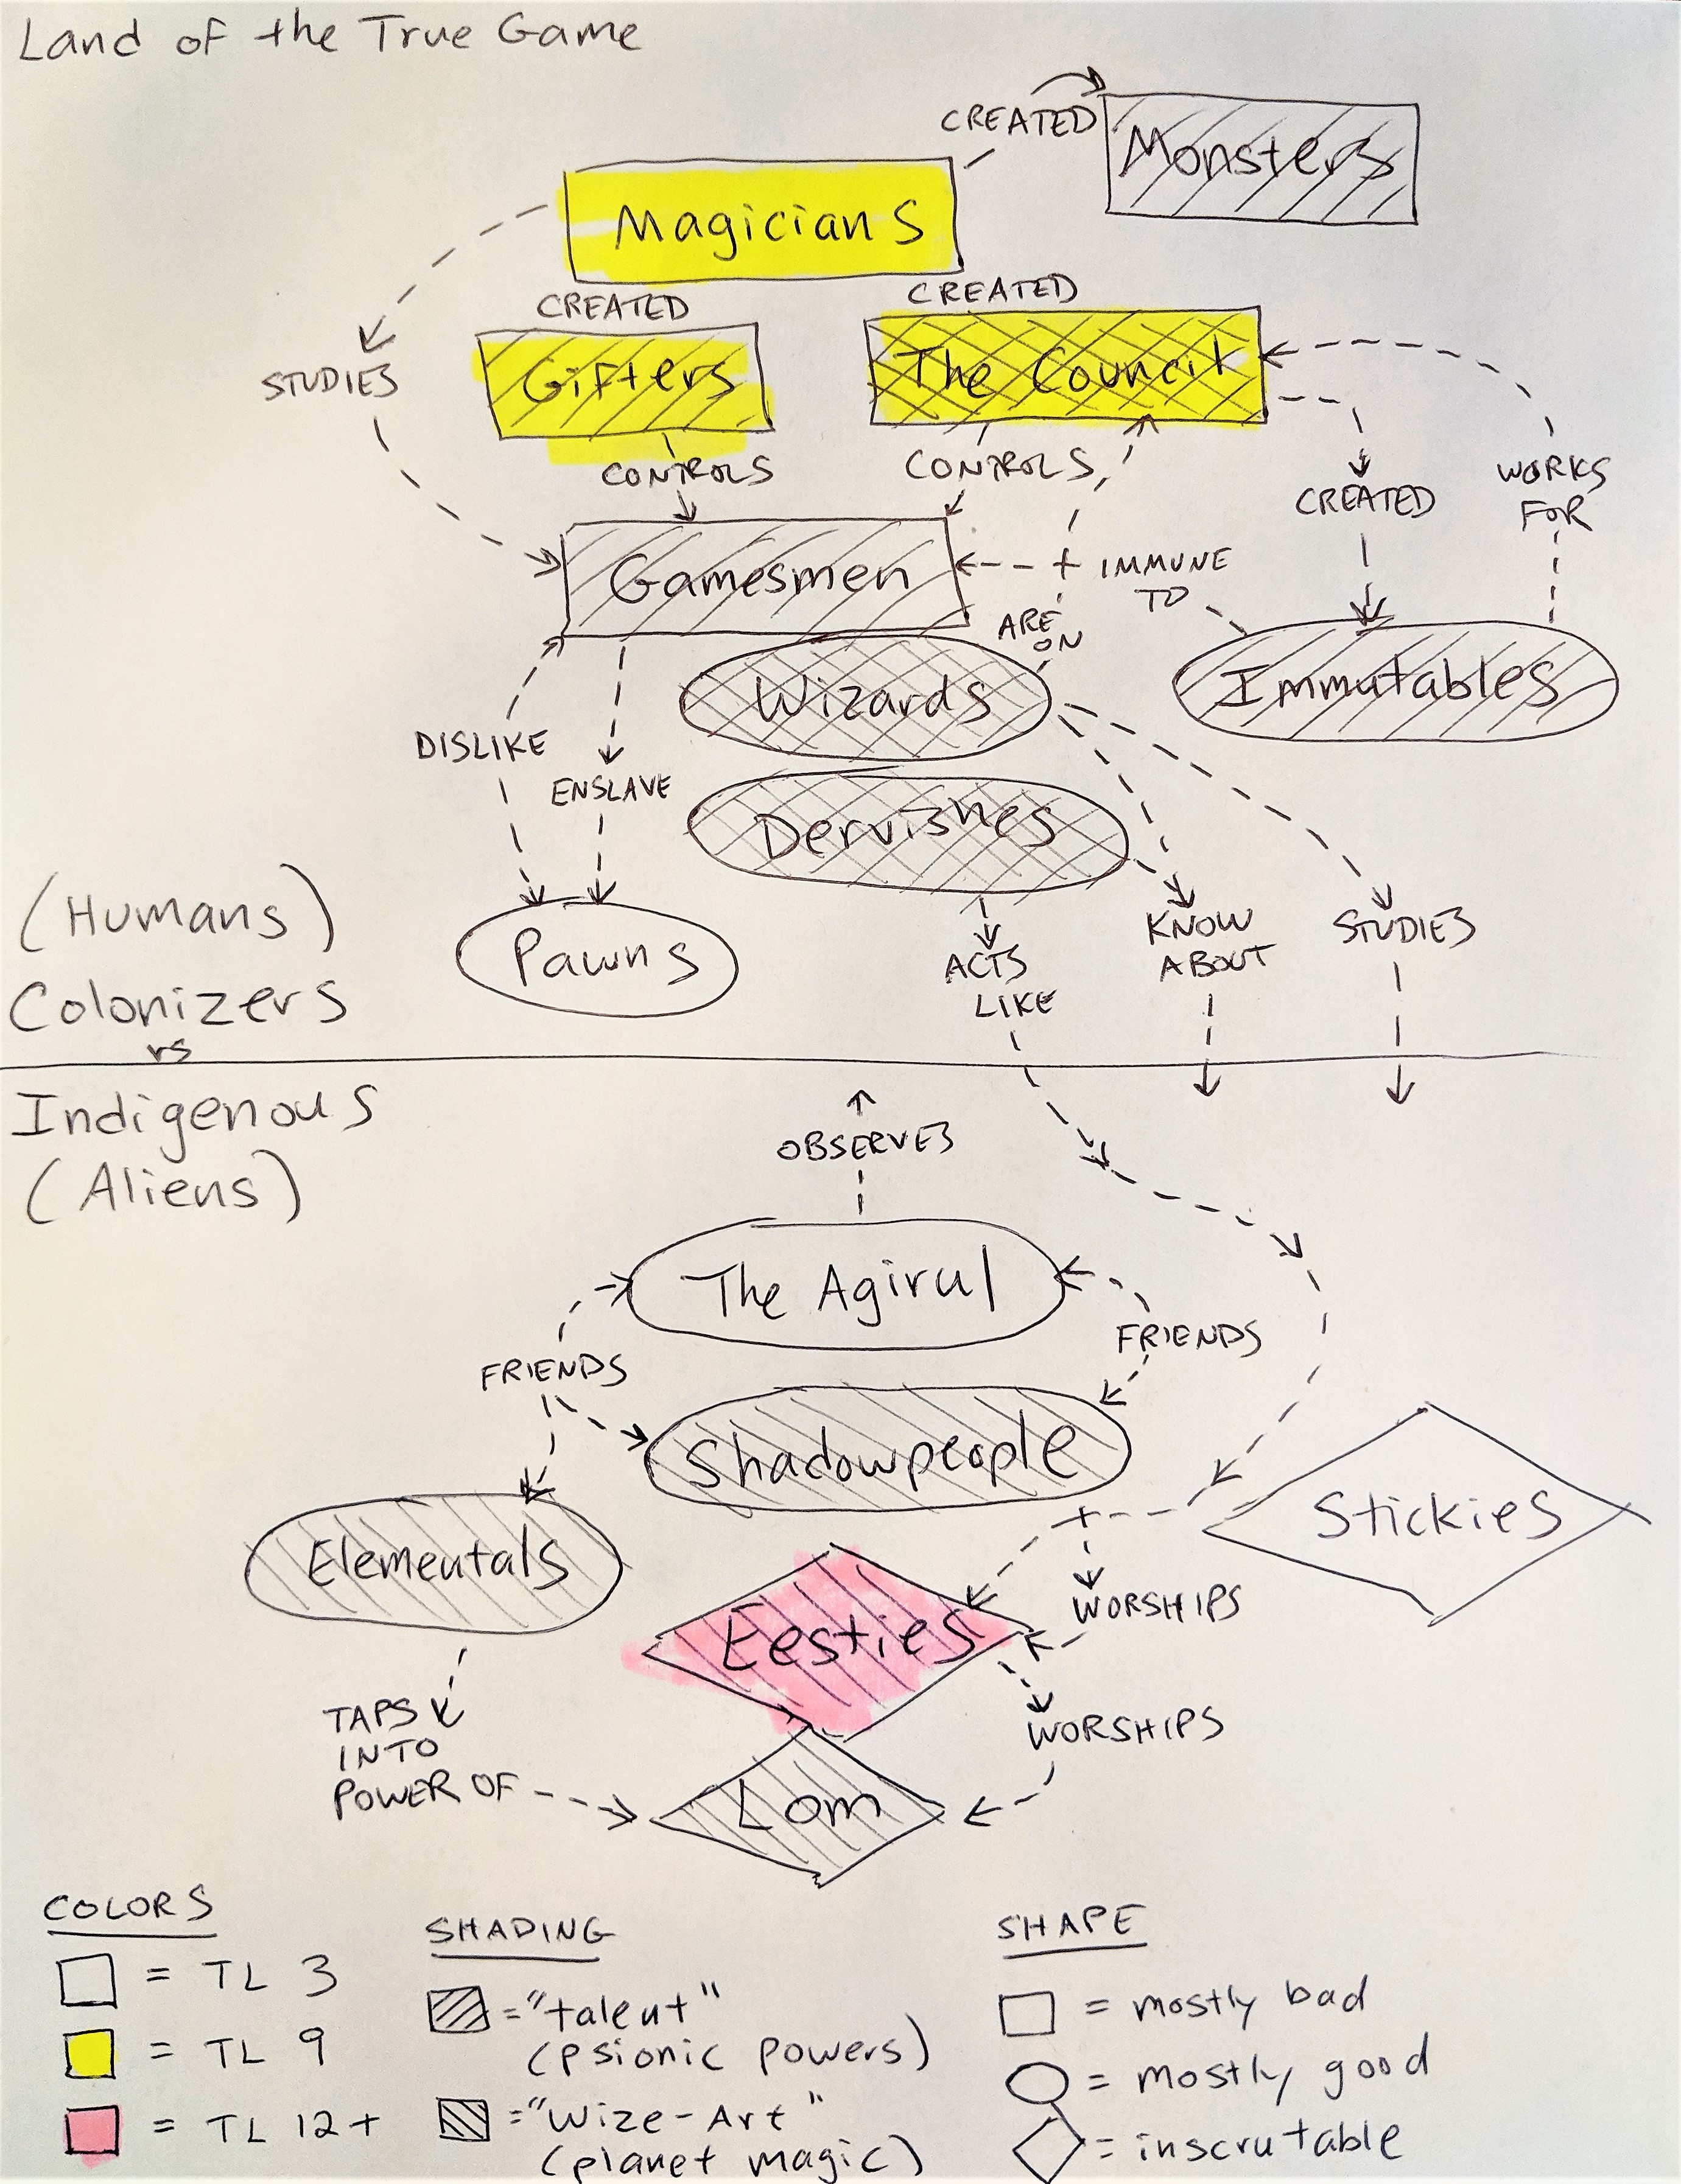 Land of the True Game
CREATED
Monsters
Magicians
CREATED
CREATED
Gifters
The Council
STUDIES
CONTROLS
CONTROLS
WORKS
FOR
CREATED
Gamesmen
IMMUNE
TO
ARE
ON
Wizards
Immutables
DISLIKE
ENSLAVE
Dervishes
(Humans)
Colonizers
vs
Pawns
ACTS
LIKE
KNOW
ABOUT
STUDIES
Indigenous
(Aliens)
OBSERVES
The Agirul
FRIENDS
FRIENDS
Shadowpeople
Stickies
Elementals
Eesties
WORSHIPS
TAPS
INTO
POWER OF
WORSHIPS
Lom
COLORS
= TL 3
= TL 9
= TL 12+
SHADING
= "talent"
(psionic powers)
= "Wize-Art"
(planet magic)
SHAPE
= mostly bad
= mostly good
= inscrutable